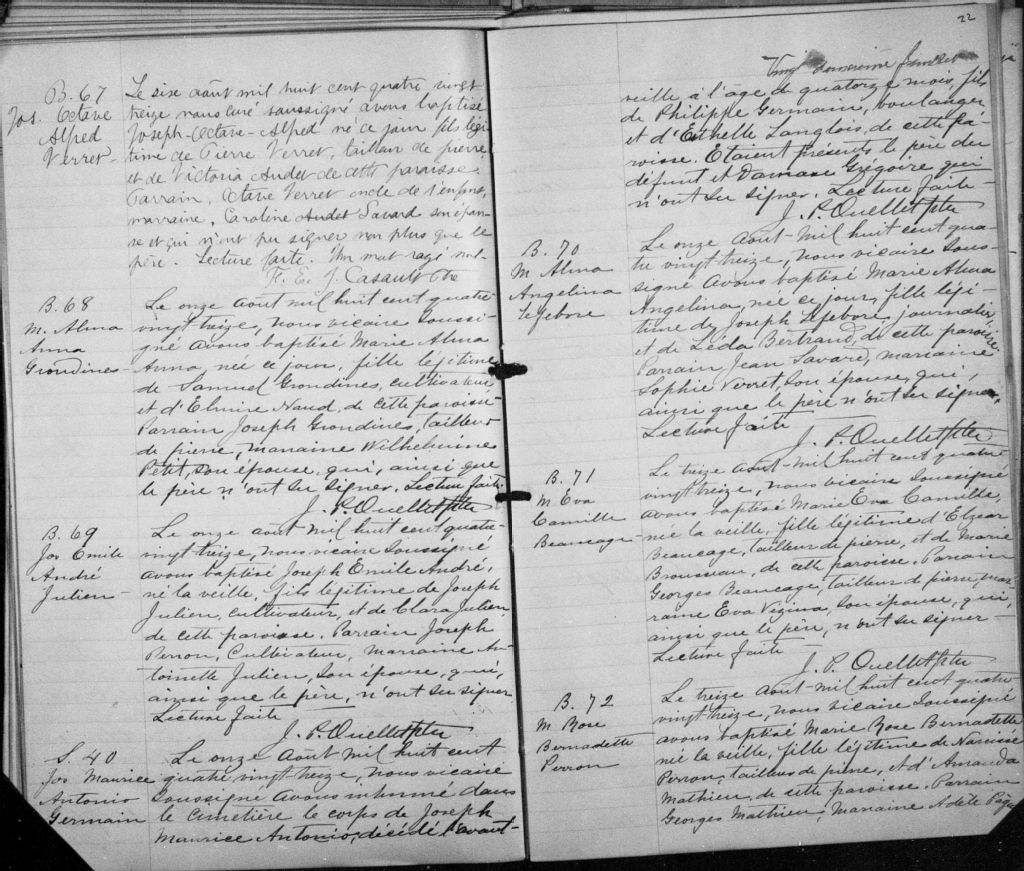 B. 67
Jos. Octave
Alfred
Verret
Le six août mil huit cent quatre vingt
treize nous curé soussigné avons baptisé
Joseph-Octave-Alfred né ce jour fils légi-
time de Pierre Verret, tailleur de pierre,
et de Victoria Audet de cette paroisse.
Parrain, Octave Verret oncle de l'enfant,
marraine, Caroline Audet Savard son épou-
se et qui n'ont pu signer non plus que le
père. Lecture faite. Un mot rayé nul
F. E. J. Casault Ptre
B. 68
M. Alma
Anna
Grondines
Le onze août mil huit cent quatre
vingt treize, nous vicaire soussi-
gné avons baptisé Marie Alma
Anna, née ce jour, fille légitime
de Samuel Grondines, cultivateur
et d'Elmire Naud, de cette paroisse.
Parrain Joseph Grondines, tailleur
de pierre, marraine Wilhelmine
Petit, son épouse, qui, ainsi que
le père n'ont su signer. Lecture faite.
J. P. Ouellet Ptre
B. 69
Jos Emile
André
Julien
Le onze août mil huit cent quatre
vingt treize, nous vicaire soussigné
avons baptisé Joseph Emile André,
né la veille, fils légitime de Joseph
Julien, cultivateur, et de Clara Julien,
de cette paroisse. Parrain Joseph
Perron, cultivateur, marraine An-
toinette Julien, son épouse, qui,
ainsi que le père, n'ont su signer
Lecture faite
J. P. Ouellet Ptre
S. 40
Jos Maurice
Antonio
Germain
Le onze août mil huit cent
quatre vingt treize, nous vicaire
soussigné avons inhumé dans
le cimetière le corps de Joseph
Maurice Antonio, décédé l'avant-
22
veille à l'age de quatorze mois, fils
de Philippe Germain, boulanger
et d'Esthelle Langlois, de cette pa-
roisse. Etaient présents le père du
défunt et Damase Grégoire, qui
n'ont su signer. Lecture faite
J. P. Ouellet Ptre
B. 70
M Alma
Angelina
Lefebvre
Le onze août mil huit cent qua-
tre vingt treize, nous vicaire sous-
signé avons baptisé Marie Alma
Angelina, née ce jour, fille légi-
time de Joseph Lefebvre, journalier
et de Léda Bertrand, de cette paroisse.
Parrain Jean Savard, marraine
Sophie Verret, son épouse, qui,
ainsi que le père n'ont su signer.
Lecture faite
J. P. Ouellet Ptre
B. 71
M Eva
Camille
Beaucage
Le treize août mil huit cent quatre
vingt treize, nous vicaire soussigné
avons baptisé Marie Eva Camille,
née la veille, fille légitime d'Elzear
Beaucage, tailleur de pierre, et de Marie
Brousseau, de cette paroisse. Parrain
Georges Beaucage, tailleur de pierre, mar-
raine Eva Vézina, son épouse, qui,
ainsi que le père, n'ont su signer
Lecture faite
J. P. Ouellet Ptre
B. 72
M Rose
Bernadette
Perron
Le treize août mil huit cent quatre
vingt treize, nous vicaire soussigné
avons baptisé Marie Rose Bernadette
née la veille, fille légitime de Narcisse
Perron, tailleur de pierre, et d'Amanda
Mathieu, de cette paroisse. Parrain
Georges Mathieu, Marraine Adèle